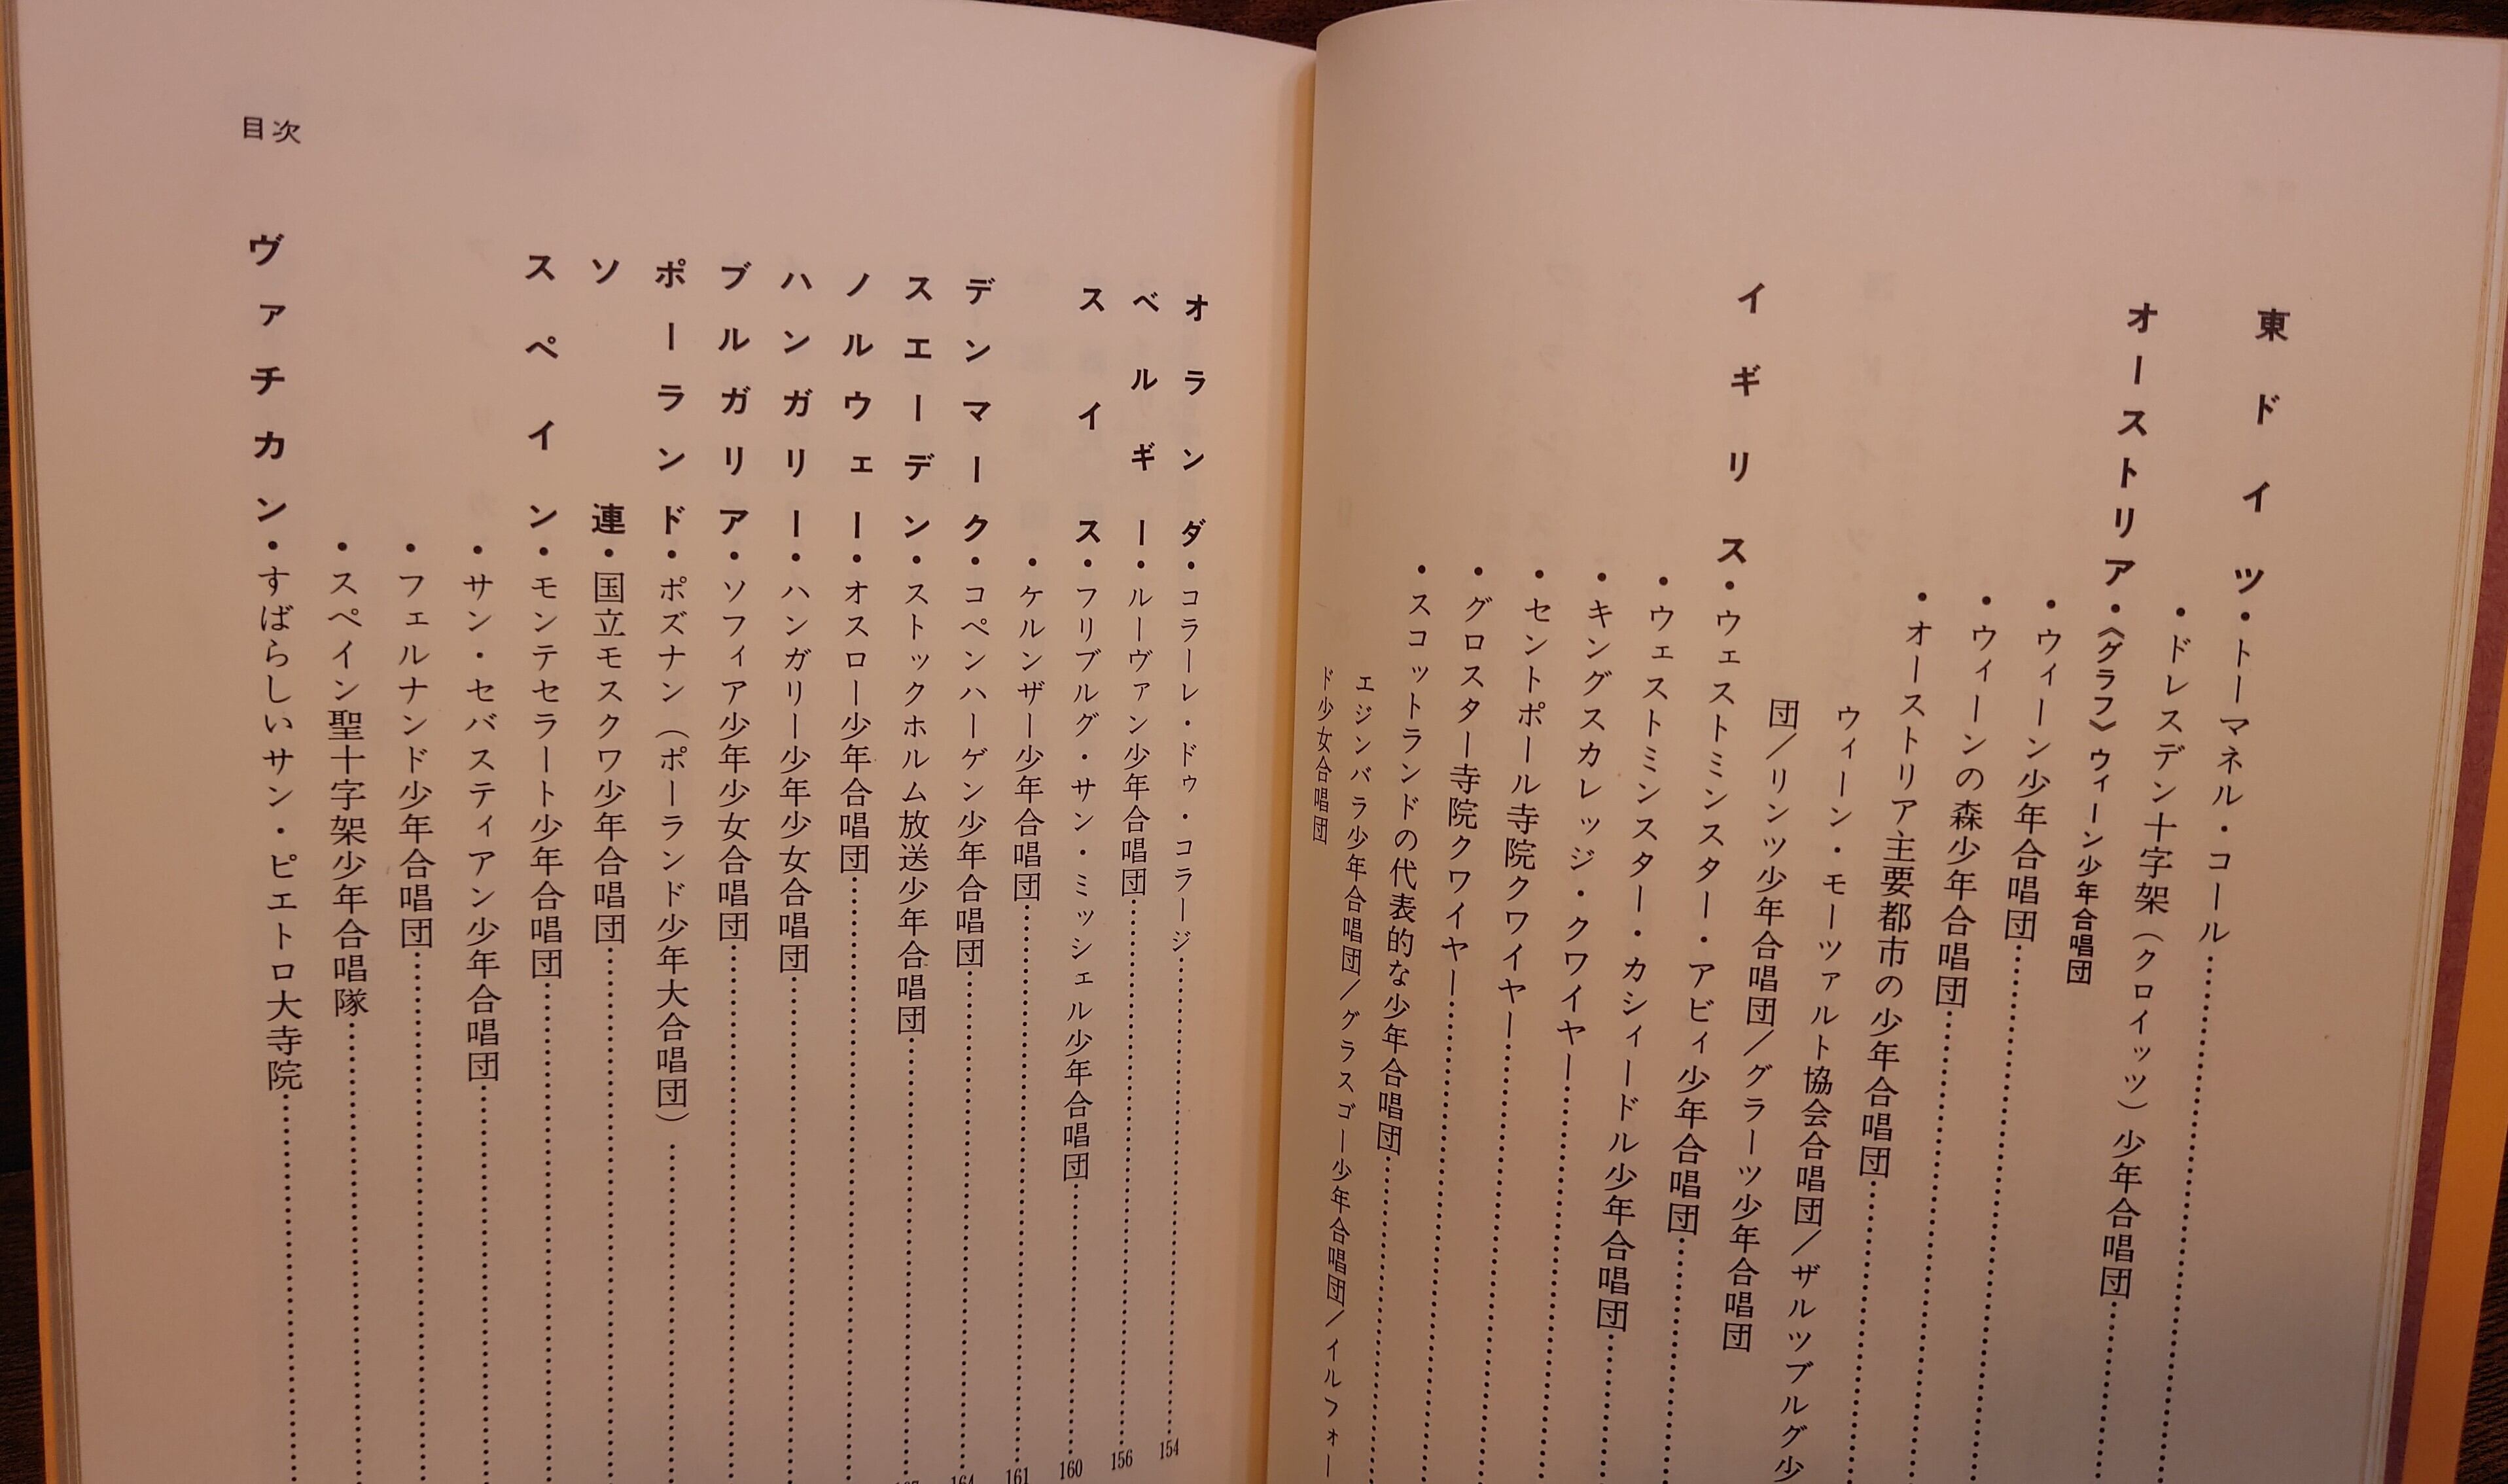 東ドイツ・トーマネル・コール……
・ドレスデン十字架（クロイツ）少年合唱団……
オーストリア・《グラフ》ウィーン少年合唱団
・ウィーン少年合唱団……
・ウィーンの森少年合唱団……
・オーストリア主要都市の少年合唱団……
ウィーン・モーツァルト協会合唱団／ザルツブルグ少
団／リンツ少年合唱団／グラーツ少年合唱団
イギリス・ウェストミンスター・アビィ少年合唱団……
・ウェストミンスター・カシィードル少年合唱団……
・キングスカレッジ・クワイヤー……
・セントポール寺院クワイヤー……
・グロスター寺院クワイヤー……
・スコットランドの代表的な少年合唱団……
エジンバラ少年合唱団／グラスゴー少年合唱団／イルフォー
ド少女合唱団
オランダ・コラーレ・ドゥ・コラージ……154
ベルギー・ルーヴァン少年合唱団……156
スイス・フリブルグ・サン・ミッシェル少年合唱団……160
・ケルンザー少年合唱団……161
デンマーク・コペンハーゲン少年合唱団……164
スエーデン・ストックホルム放送少年合唱団……
ノルウェー・オスロー少年合唱団……
ハンガリー・ハンガリー少年少女合唱団……
ブルガリア・ソフィア少年少女合唱団……
ポーランド・ポズナン（ポーランド少年大合唱団）……
ソ連・国立モスクワ少年合唱団……
スペイン・モンテセラート少年合唱団……
・サン・セバスティアン少年合唱団……
・フェルナンド少年合唱団……
・スペイン聖十字架少年合唱隊……
ヴァチカン・すばらしいサン・ピエトロ大寺院……
目次